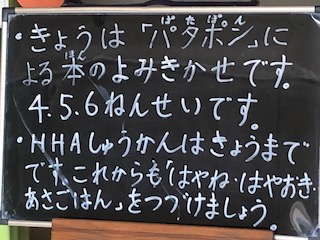 ・きょうは「パタポン」に
よる本のよみきかせです。
4.5.6ねんせいです。
・HHAしゅうかんはきょうまで
です。これからも「はやね・はやおき・
あさごはん」をつづけましょう。